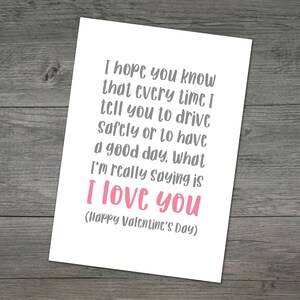 I hope you know
that every time I
tell you to drive
safely or to have
a good day. What
I'm really saying is
I love you
(Happy Valentine's Day)